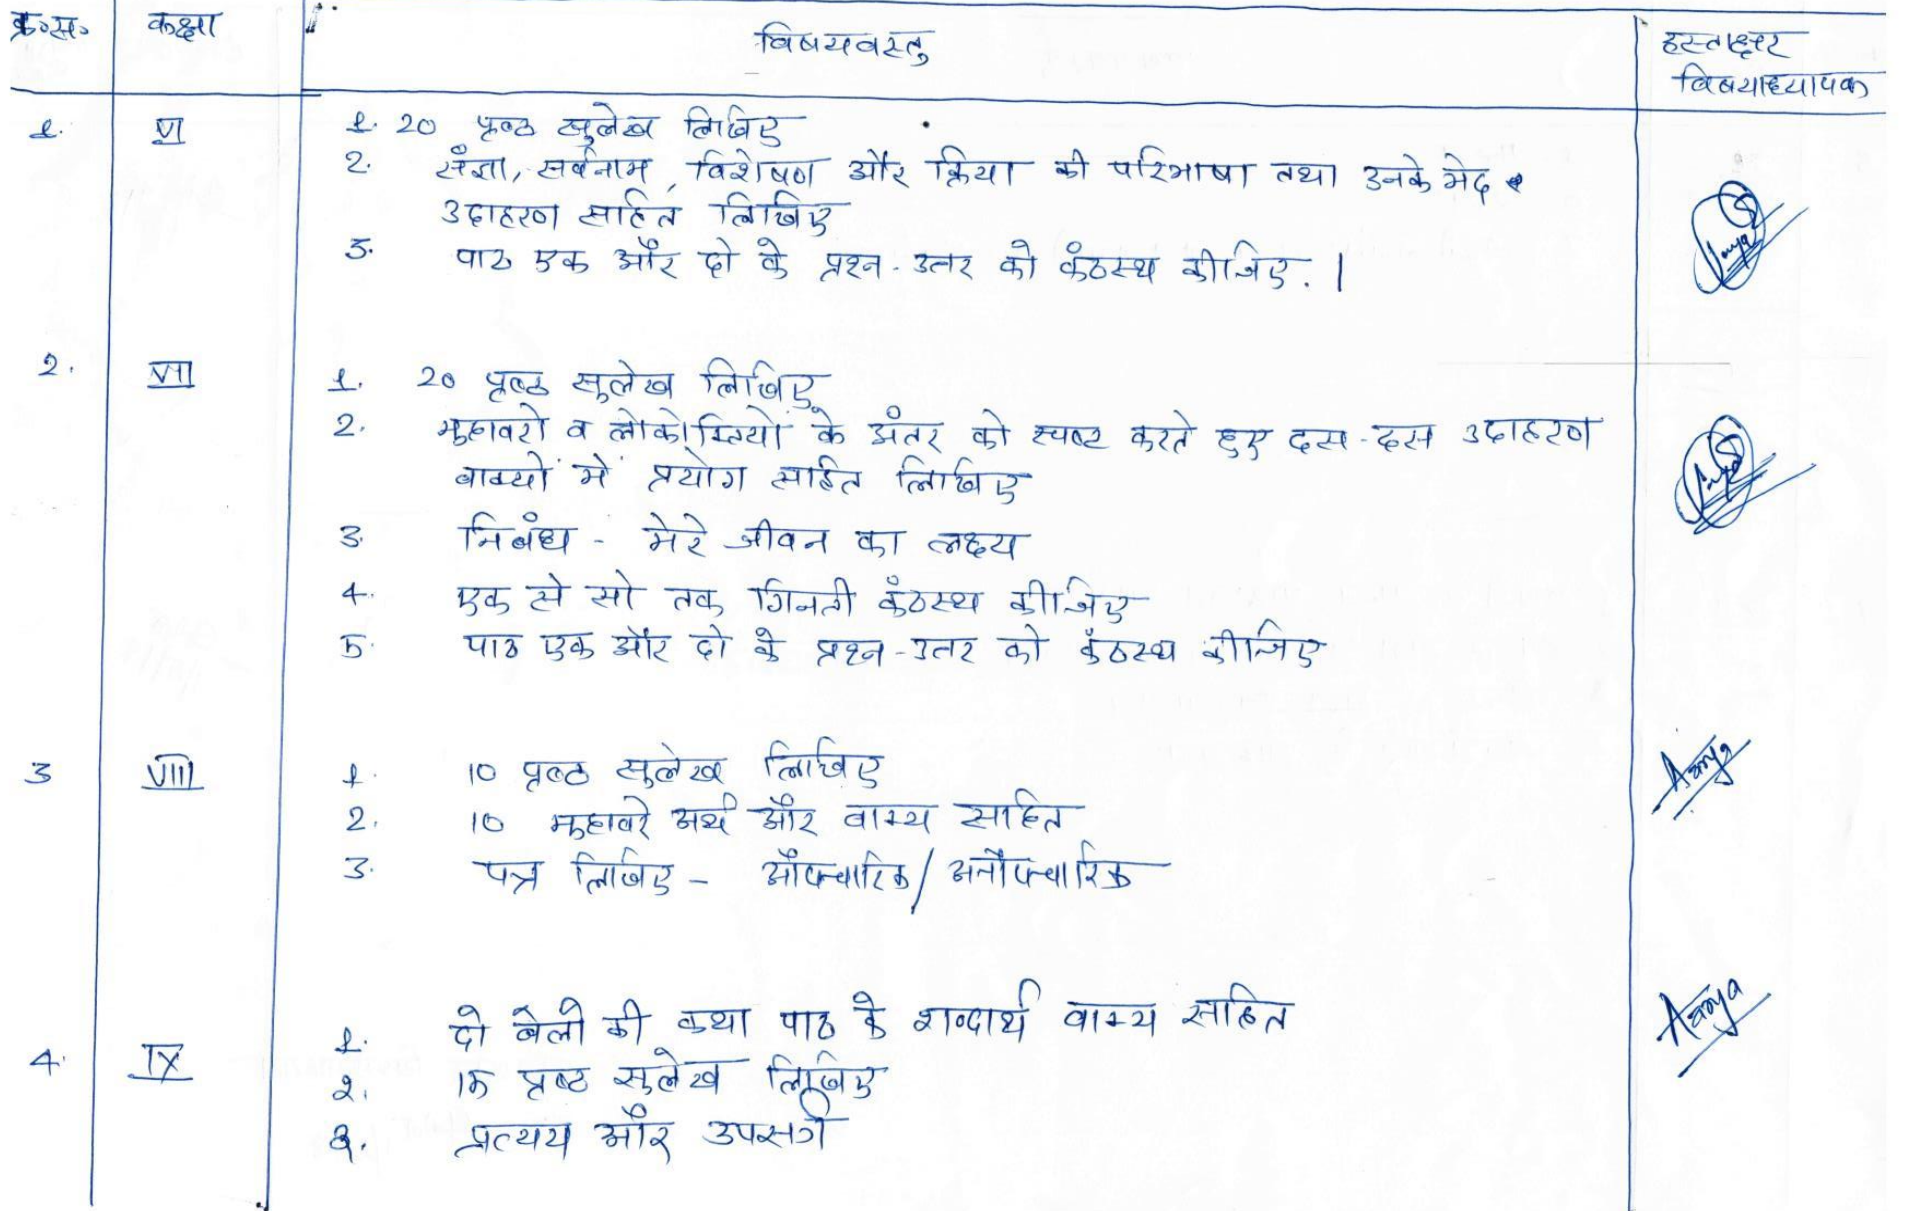 क्र०स० कक्षा विषयवस्तु हस्ताक्षर
विषयाध्यापक
1. VI 1. 20 पृष्ठ सुलेख लिखिए
2. संज्ञा, सर्वनाम, विशेषण और क्रिया की परिभाषा तथा उनके भेद
उदाहरण सहित लिखिए
3. पाठ एक और दो के प्रश्न-उत्तर को कंठस्थ कीजिए. |
2. VII 1. 20 पृष्ठ सुलेख लिखिए
2. मुहावरों व लोकोक्तियों के अंतर को स्पष्ट करते हुए दस-दस उदाहरण
वाक्यों में प्रयोग सहित लिखिए
3. निबंध - मेरे जीवन का लक्ष्य
4. एक से सो तक गिनती कंठस्थ कीजिए
5. पाठ एक और दो के प्रश्न-उत्तर को कंठस्थ कीजिए
3 VIII 1. 10 पृष्ठ सुलेख लिखिए
2. 10 मुहावरे अर्थ और वाक्य सहित
3. पत्र लिखिए - औपचारिक/अनौपचारिक
4. IX 1. दो बैलो की कथा पाठ के शब्दार्थ वाक्य सहित
2. 15 पृष्ठ सुलेख लिखिए
3. प्रत्यय और उपसर्ग